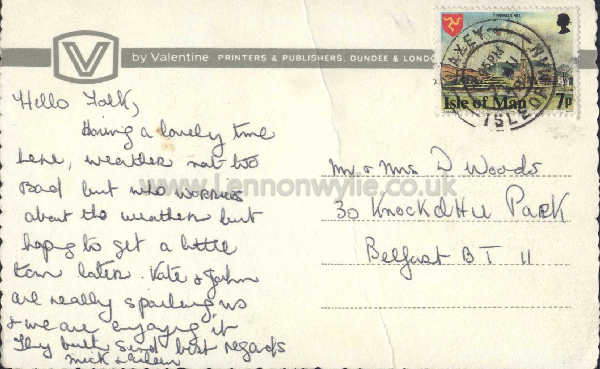 by Valentine PRINTERS & PUBLISHERS, DUNDEE & LONDO
LAXEY
ISLE OF MAN
Isle of Man 7p
Hello Folk,
Having a lovely time
here, weather not too
bad but who worries
about the weather but
hoping to get a little
tan later. Kate & John
are really spoiling us
& we are enjoying it
They both send best regards
Mick & Aileen
Mr & Mrs D Woods
30 Knockdhu Park
Belfast BT 11
www.Lennonwylie.co.uk